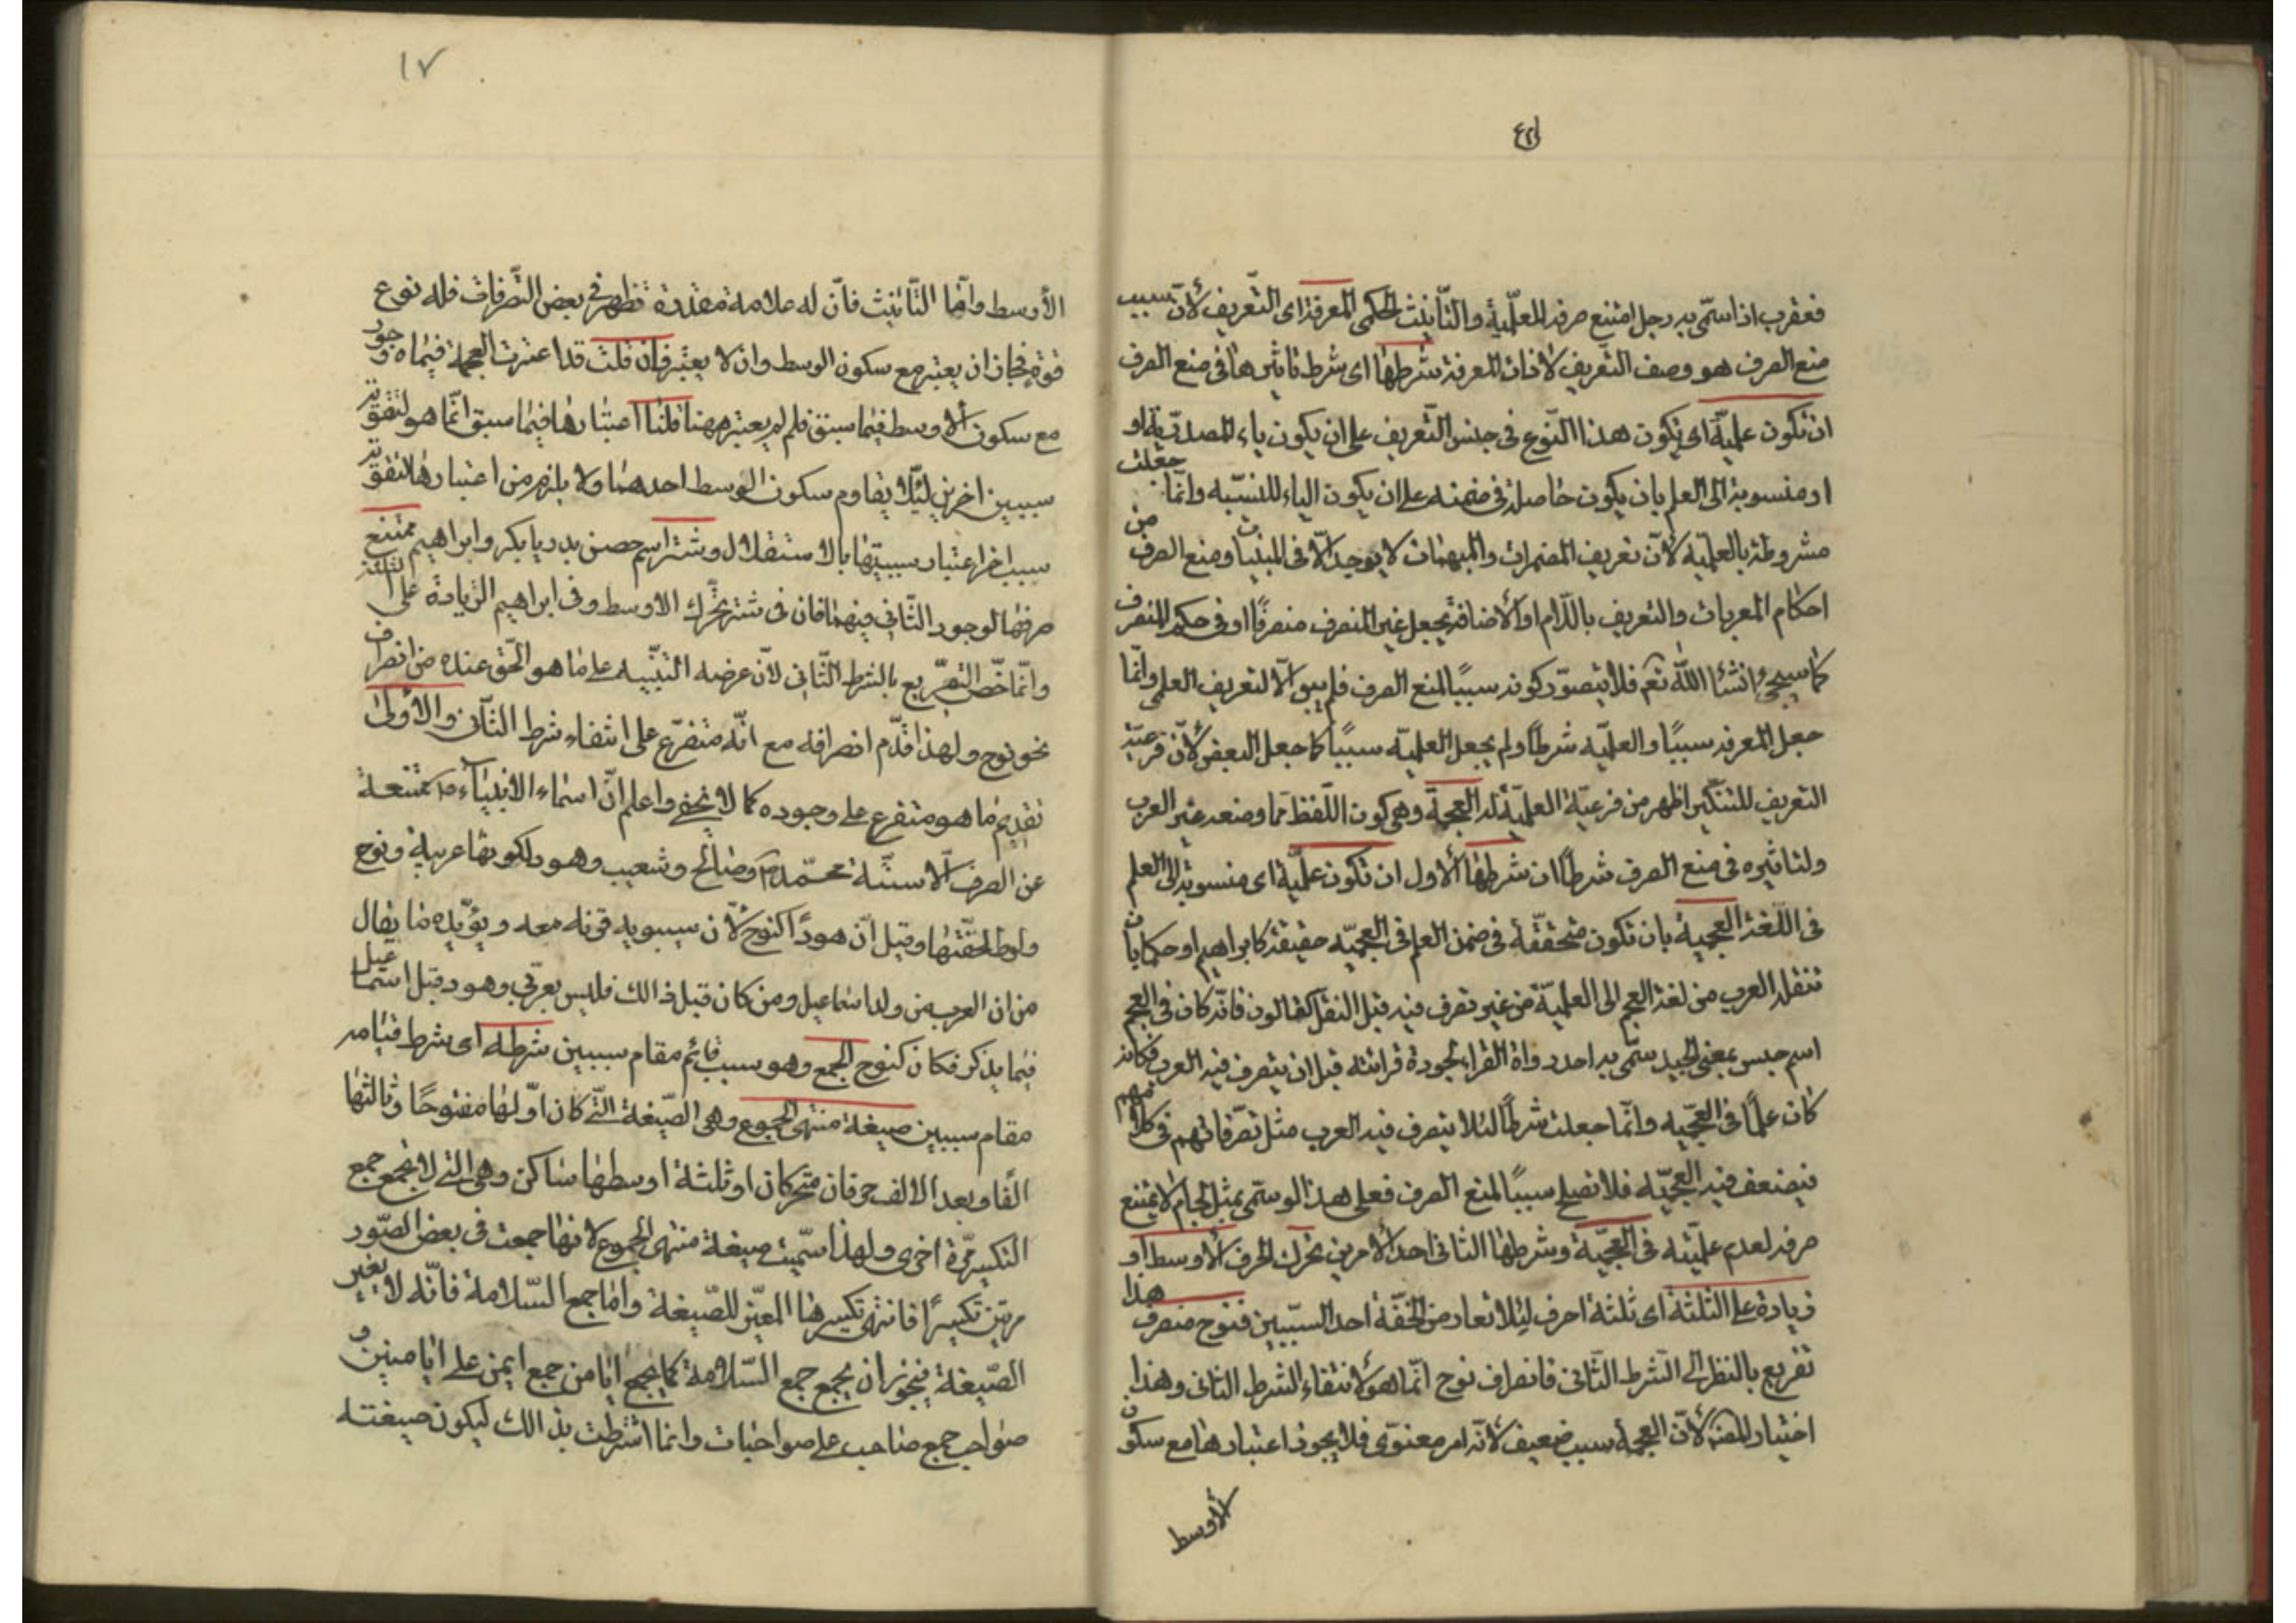 ٤٢
فعقرب اذا سمّى به رجل امتنع صرفه للعلّمية والتّأنيث الحكمى المعرفة اى التّعريف لأنّ سبب
منع الصرف هو وصف التعريف لا ذات المعرفة شرطها اى شرط تاثيرها فى منع الصرف
ان تكون علميّة اى يكون هذا النّوع فى جنس التّعريف على ان يكون ياء المصدريّة او
او منسوبة الى العلم بان يكون حاصلة فى ضمنه على ان يكون الياء للنسبّه وانّما جعلت
مشروطة بالعلميّه لأنّ تعريف المضمرات والمبهمات لا يوجد الّا فى المبنيات ومنع الصرف من
احكام المعربات والتعريف باللّام او الأضافة يجعل غير المنصرف منصرفًا او فى حكم المنصرف
كما سيجئ انشاء اللّٰه تعم فلا يتصوّر كونه سببًا لمنع الصرف فلم يبق الّا لتعريف العلمى وانّما
جعل المعرفه سببًا والعلميّه شرطًا ولم يجعل العلميّه سببًا كما جعل البعض لأنّ فرعيّة
التعريف للتنكير اظهر من فرعيّة العلميّة له العجمة وهى كون اللّفظ ممّا وضعه غير العرب
ولتاثيره فى منع الصرف شرطان شرطها الأول ان تكون علميّة اى منسوبة الى العلم
فى اللّغة العجمية بان تكون متحقّقة فى ضمن العلم فى العجميّه حقيقة كابراهيم او حكما بان
تنقله العرب من لغة العجم الى العلميّة من غير تصرف فيه قبل النقل كقالون فانّه كان فى العجم
اسم جنس بمعنى الجيد سمّى به احد رواة القرا لجودة قرائته قبل ان يتصرف فيه العرب فكانه
كان علمًا فى العجميّه وانّما جعلت شرطًا لئلا يتصرف فيه العرب مثل تصّرفاتهم فى كلامهم
فيضعف فيه العجميّه فلا تصلح سببًا لمنع الصرف فعلى هذا لو سمّى بمثل لجام لا يمتنع
صرفه لعدم علميّته فى العجميّة وشرطها الثانى احد الأمرين تحرك الحرف الأوسط او
زيادة على الثلثة اى ثلثة احرف لئلا تعارض الخفّة احد السّببين فنوح منصرف هذا
تفريع بالنظر الى الشرط الثّانى فانصراف نوح انّما هو لأنتفاء الشرط الثانى وهذا
اختيار المصنف لأنّ العجمة سبب ضعيف لأنّه امر معنوىّ فلا يجوز اعتبارها مع سكون
الأوسط
١٧
الأوسط وامّا التّأنيث فانّ له علامة مقدرة تظهر فى بعض التّصرفات فله نوع
قوة فجاز ان يعتبر مع سكون الوسط وان لا يعتبر فان قلت قد اعتبرت العجمة فيماه وجور
مع سكون الأوسط فيما سبق فلم لم يعتبر ههنا قلنا اعتبارها فيما سبق انّما هو لتقوية
سببين اخرين ليلّا يقاوم سكون الوسط احدهما ولا يلزم من اعتبارها لتقوية
سبب اخر اعتبار سببيّتها بالاستقلال وشتر اسم حصن بديار بكر وابراهيم ممتنع
صرفهما لوجود الثّانى فيهما فان فى شتر تحرّك الاوسط وفى ابراهيم الزيادة على الثلثة
وانّما خّص التفريع بالشرط الثّانى لأنّ غرضه التنبّيه على ما هو الحّق عنده من انصراف
نحو نوح ولهذا قدّم انصرافه مع انّه متفرّع على انتفاء شرط الثّانى والأولى
تقديم ما هو متفرع على وجوده كما لا يخفى واعلم انّ اسماء الانبياء ممتنعة
عن الصرف الّا ستّة محمّد وصالح وشعيب وهود لكونها عربية ونوح
ولوط لخفّتها وقيل انّ هودًا كنوح لأن سيبويه قرنه معه ويؤيّده ما يقال
من ان العرب من ولد اسماعيل ومن كان قبل ذالك فليس بعربّى وهود قبل اسماعيل
فيما يذكر فكان كنوح الجمع وهو سبب قائم مقام سببين شرطه اى شرط قيامه
مقام سببين صيغة منتهى الجموع وهى الصّيغة الّتى كان اوّلها مفتوحًا وثالثها
الفًا وبعد الالف حرفان متحركان او ثلثة اوسطها ساكن وهى التى لا تجمع جمع
التكسير مّرة اخرى ولهذا سمّيت صيغة منتهى الجموع لأنها جمعت فى بعض الصّور
مرتين تكسيرًا فانتهى تكسيرها المغيّر للصّيغة وامّا جمع السّلامة فانّه لا يغير
الصّيغة فيجوز ان يجمع جمع السّلامة كما يجمع ايامن جمع ايمن على ايامنين و
صواحب جمع صاحب على صواحبات وانما اشترطت بذالك ليكون صيغته